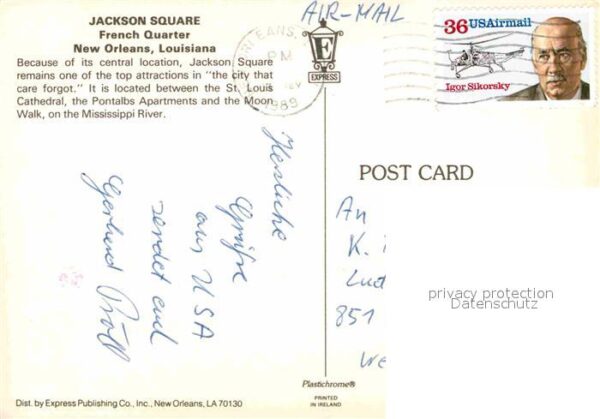 JACKSON SQUARE
French Quarter
New Orleans, Louisiana
Because of its central location, Jackson Square
remains one of the top attractions in "the city that
care forgot." It is located between the St. Louis
Cathedral, the Pontalbs Apartments and the Moon
Walk, on the Mississippi River.
AIR-MAIL
PM
1989
E
EXPRESS
36 USAirmail
Igor Sikorsky
POST CARD
Herzliche
Grüße
aus USA
sendet euch
Gerhard
An
K.
851
privacy protection
Datenschutz
Plastichrome®
PRINTED
IN IRELAND
Dist. by Express Publishing Co., Inc., New Orleans, LA 70130